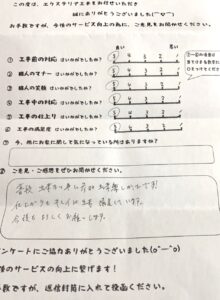 この度は、エクステリア工事をお任せいただき
誠にありがとうございました(⌒▽⌒)
お手数ですが、今後のサービス向上の為に、ご意見をお聞かせください。
良い 悪い
① 工事前の対応 はいかがでしたか? 5 4 3 2 1
② 職人のマナー はいかがでしたか? 5 4 3 2 1
③ 職人の笑顔 はいかがでしたか? 5 4 3 2 1
④ 工事中の対応 はいかがでしたか? 5 4 3 2 1
⑤ 工事の仕上り はいかがでしたか? 5 4 3 2 1
⑥ 工事の満足度 はいかがでしたか? 5 4 3 2 1
①~⑥の項目は
当てはまる数字に
○をつけてください
⑦ 今、他にお宅に関して気になっている所はありますか?
⑧ ご意見・ご感想をぜひお聞かせください。
仕上がりも
今後も よろしくお願いします。
ンケートにご協力ありがとうございました(o^―^o)
後のサービスの向上に繋げます!
手数ですが、返信封筒に入れて投函ください。